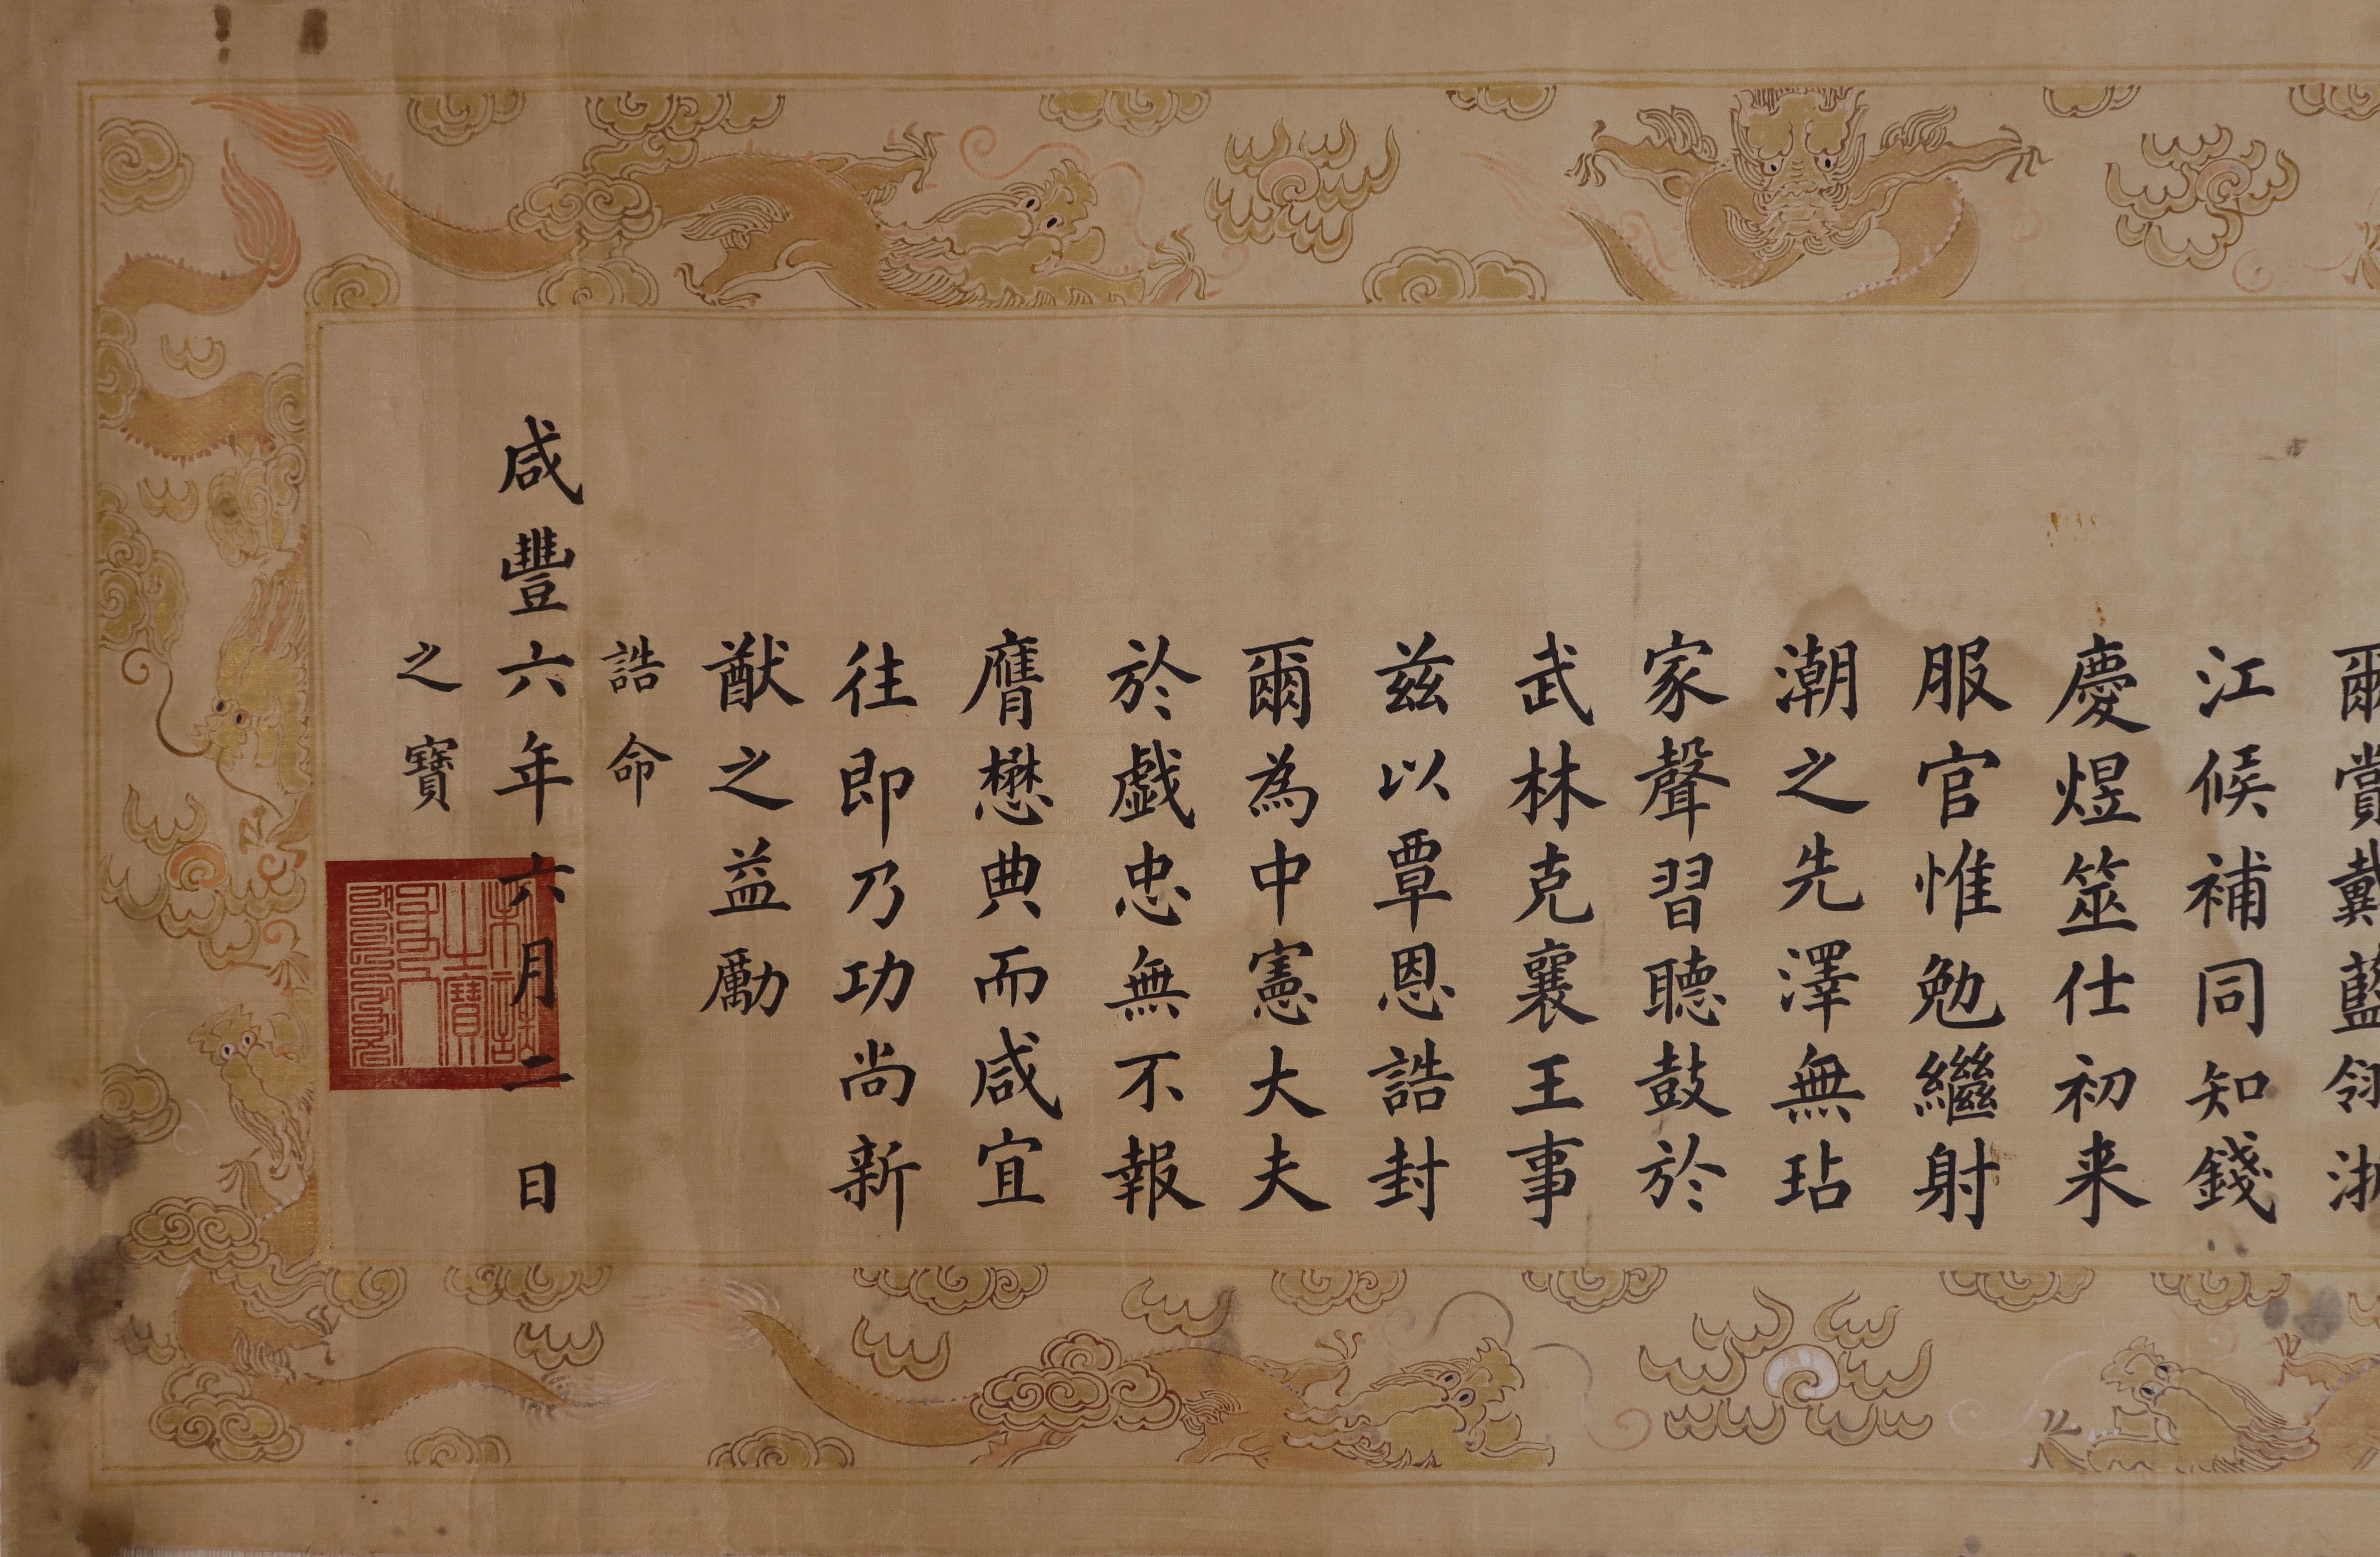 爾賞戴藍翎浙
江候補同知錢
慶煜筮仕初来
服官惟勉繼射
潮之先澤無玷
家聲習聽鼓於
武林克襄王事
兹以覃恩誥封
爾為中憲大夫
於戯忠無不報
膺懋典而咸宜
往即乃功尚新
猷之益勵
誥命
咸豐六年六月二日
之寶
制誥
之寶